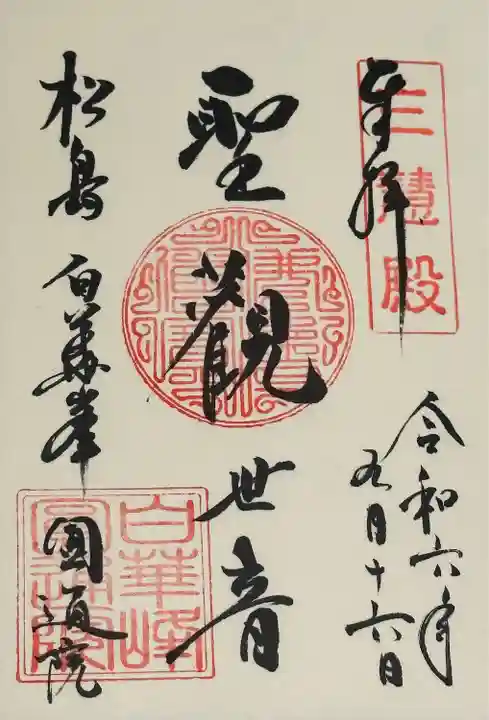 三慧殿
奉拝
令和六年
九月十六日
聖觀世音
松島 白華峰 圓通院
白華峰
圓通院